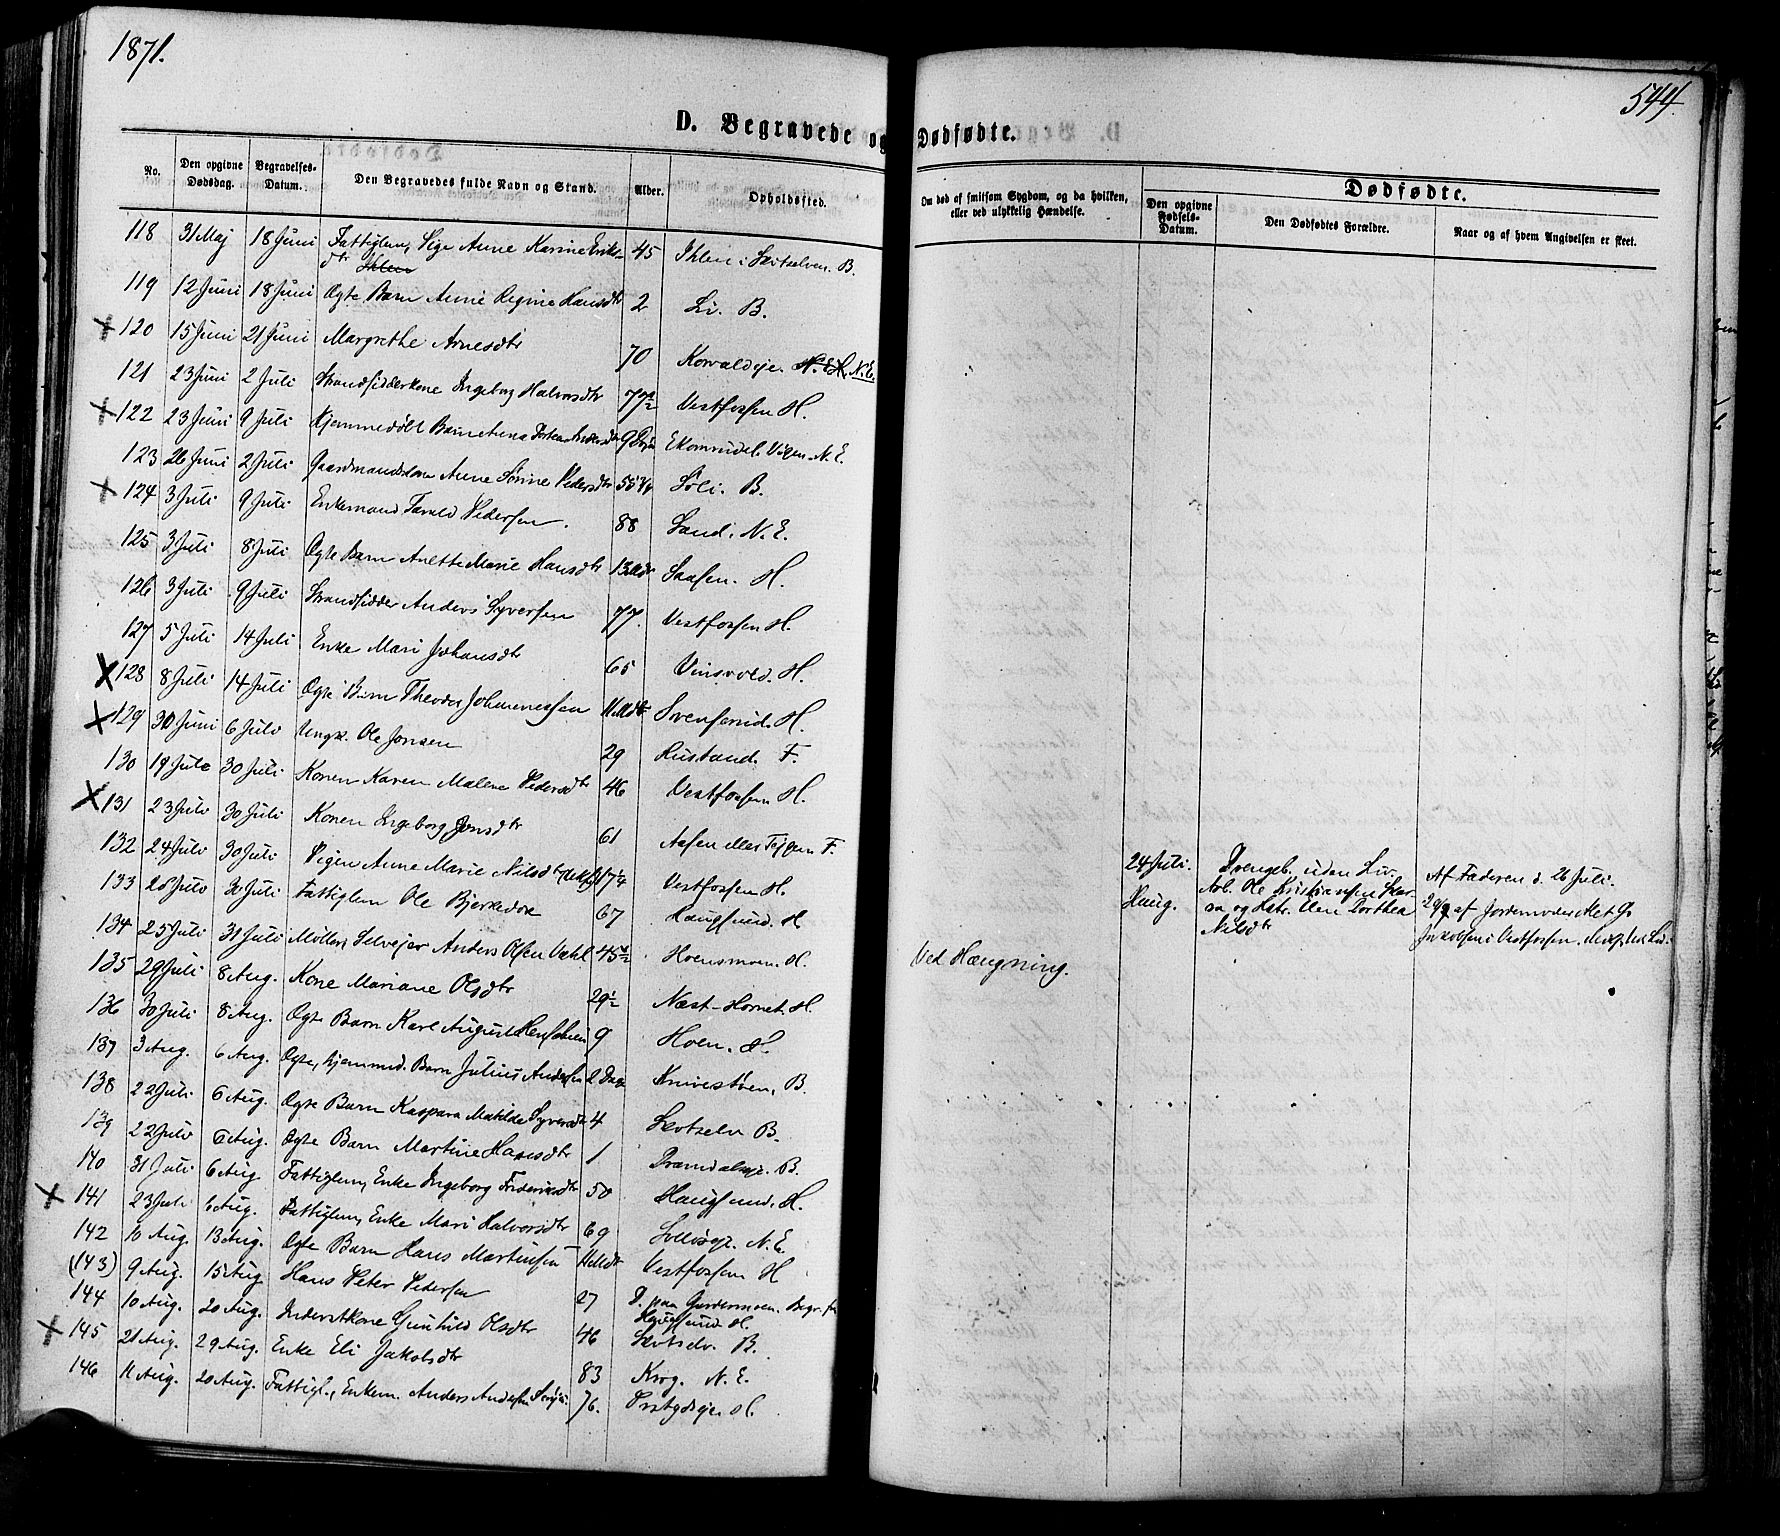 1871.
544.
D. Begravede og Dødfødte.
No.
Den opgivne Dødsdag.
Begravelses-Datum.
Den Begravedes fulde Navn og Stand.
Alder.
Opholdssted.
Om død af smitsom Sygdom, og da hvilken, eller ved ulykkelig Hændelse.
Dødfødte.
Den opgivne Fødsels-Datum.
Den Dødfødtes Forældre.
Naar og af hvem Angivelsen er skeet.
118 31 Maj 18 Juni Fattiglem, Pige Anne Karine Eriksdtr 45 Ihlen i Skotselven. B.
119 12 Juni 18 Juni Ægte Barn Anne Regine Hansdtr 2 Li. B.
120 15 Juni 21 Juni Margrethe Arnesdtr 70 Korvaldeje. N.E.
121 23 Juni 2 Juli Strandsidderkone Ingeborg Halvorsdtr 77½ Vestfossen H.
122 23 Juni 9 Juli Hjemmedøbt Barn Anna Andersdtr 9 N.E.
123 26 Juni 2 Juli Gaardmandskone Anne Sørine Pedersdtr 55 Søli. B.
124 3 Juli 9 Juli Enkemand Pedersen. 88 Sand. N.E.
125 3 Juli 8 Juli Ægte Barn Anette Marie Hansdtr 13 Mdr Aasen. H.
126 3 Juli 9 Juli Strandsidder Anders Syversen 77. Vestfossen H.
127 5 Juli 14 Juli Enke Mari Johansdtr 65 Vinsvold. H.
128 8 Juli 14 Juli Ægte Barn Theodor Johannessen 11 Mdr Svenserud. H.
129 30 Juni 6 Juli Ungk. Ole Jonsen 29 Rustand. F.
130 19 Juli 30 Juli Konen Karen Malene Pedersdtr 46 Vestfossen H.
131 23 Juli 30 Juli Konen Ingeborg Jonsdtr 61 Aasen F.
132 24 Juli 30 Juli Pigen Anne Marie Nilsdtr 17¼ Vestfossen H.
133 25 Juli 30 Juli Fattiglem Ole Bjerkedok 67 Haugsund. H
134 25 Juli 31 Juli Møller, Selvejer Anders Olsen 45½ Hoensmoen. H. Ved Hængning.
135 29 Juli 8 Aug. Kone Mariane Olsdtr 29½ Næst-Hornet. H.
136 30 Juli 8 Aug. Ægte Barn Karl August 9 Hoen. H.
137 3 Aug. 6 Aug. Ægte, hjemmed. Barn Julius Andersen 2 Dage Knivestøen, B.
138 22 Juli 6 Aug. Ægte Barn Kaspara Matilde Syversdtr 4 Skotselv B.
139 22 Juli 6 Aug. Ægte Barn Martine Hansdtr 1 B.
140 31 Juli 6 Aug Fattiglem, Enke Ingeborg Frederiksdtr 50 Haugsund. H.
141 23 Juli 6 Aug. Fattiglem, Enke Mari Halvorsdtr 69 N.E.
142 10 Aug. 13 Aug. Ægte Barn Hans Martinsen 11 Mdr Vestfossen H
(143) 9 Aug. 15 Aug Hans Peter Pedersen 27 D. paa Gardermoen. Begr. fra Haugsund. H.
144 10 Aug. 20 Aug. Inderstkone Gunhild Olsdtr 46 Skotselv. B.
145 21 Aug. 29 Aug. Enke Eli Jakobsdtr 83 Krog. N.E.
146 11 Aug. 20 Aug. Fattigl., Enkem. Anders Andersen 76. H.
24 Juli. Haug.
Drengeb. uden Liv.
Arb. Ole Kristiansen og Hstr. Elen Dorthea Nilsdtr
Af Faderen d. 26 Juli.
af Jordemoder i Vestfossen.